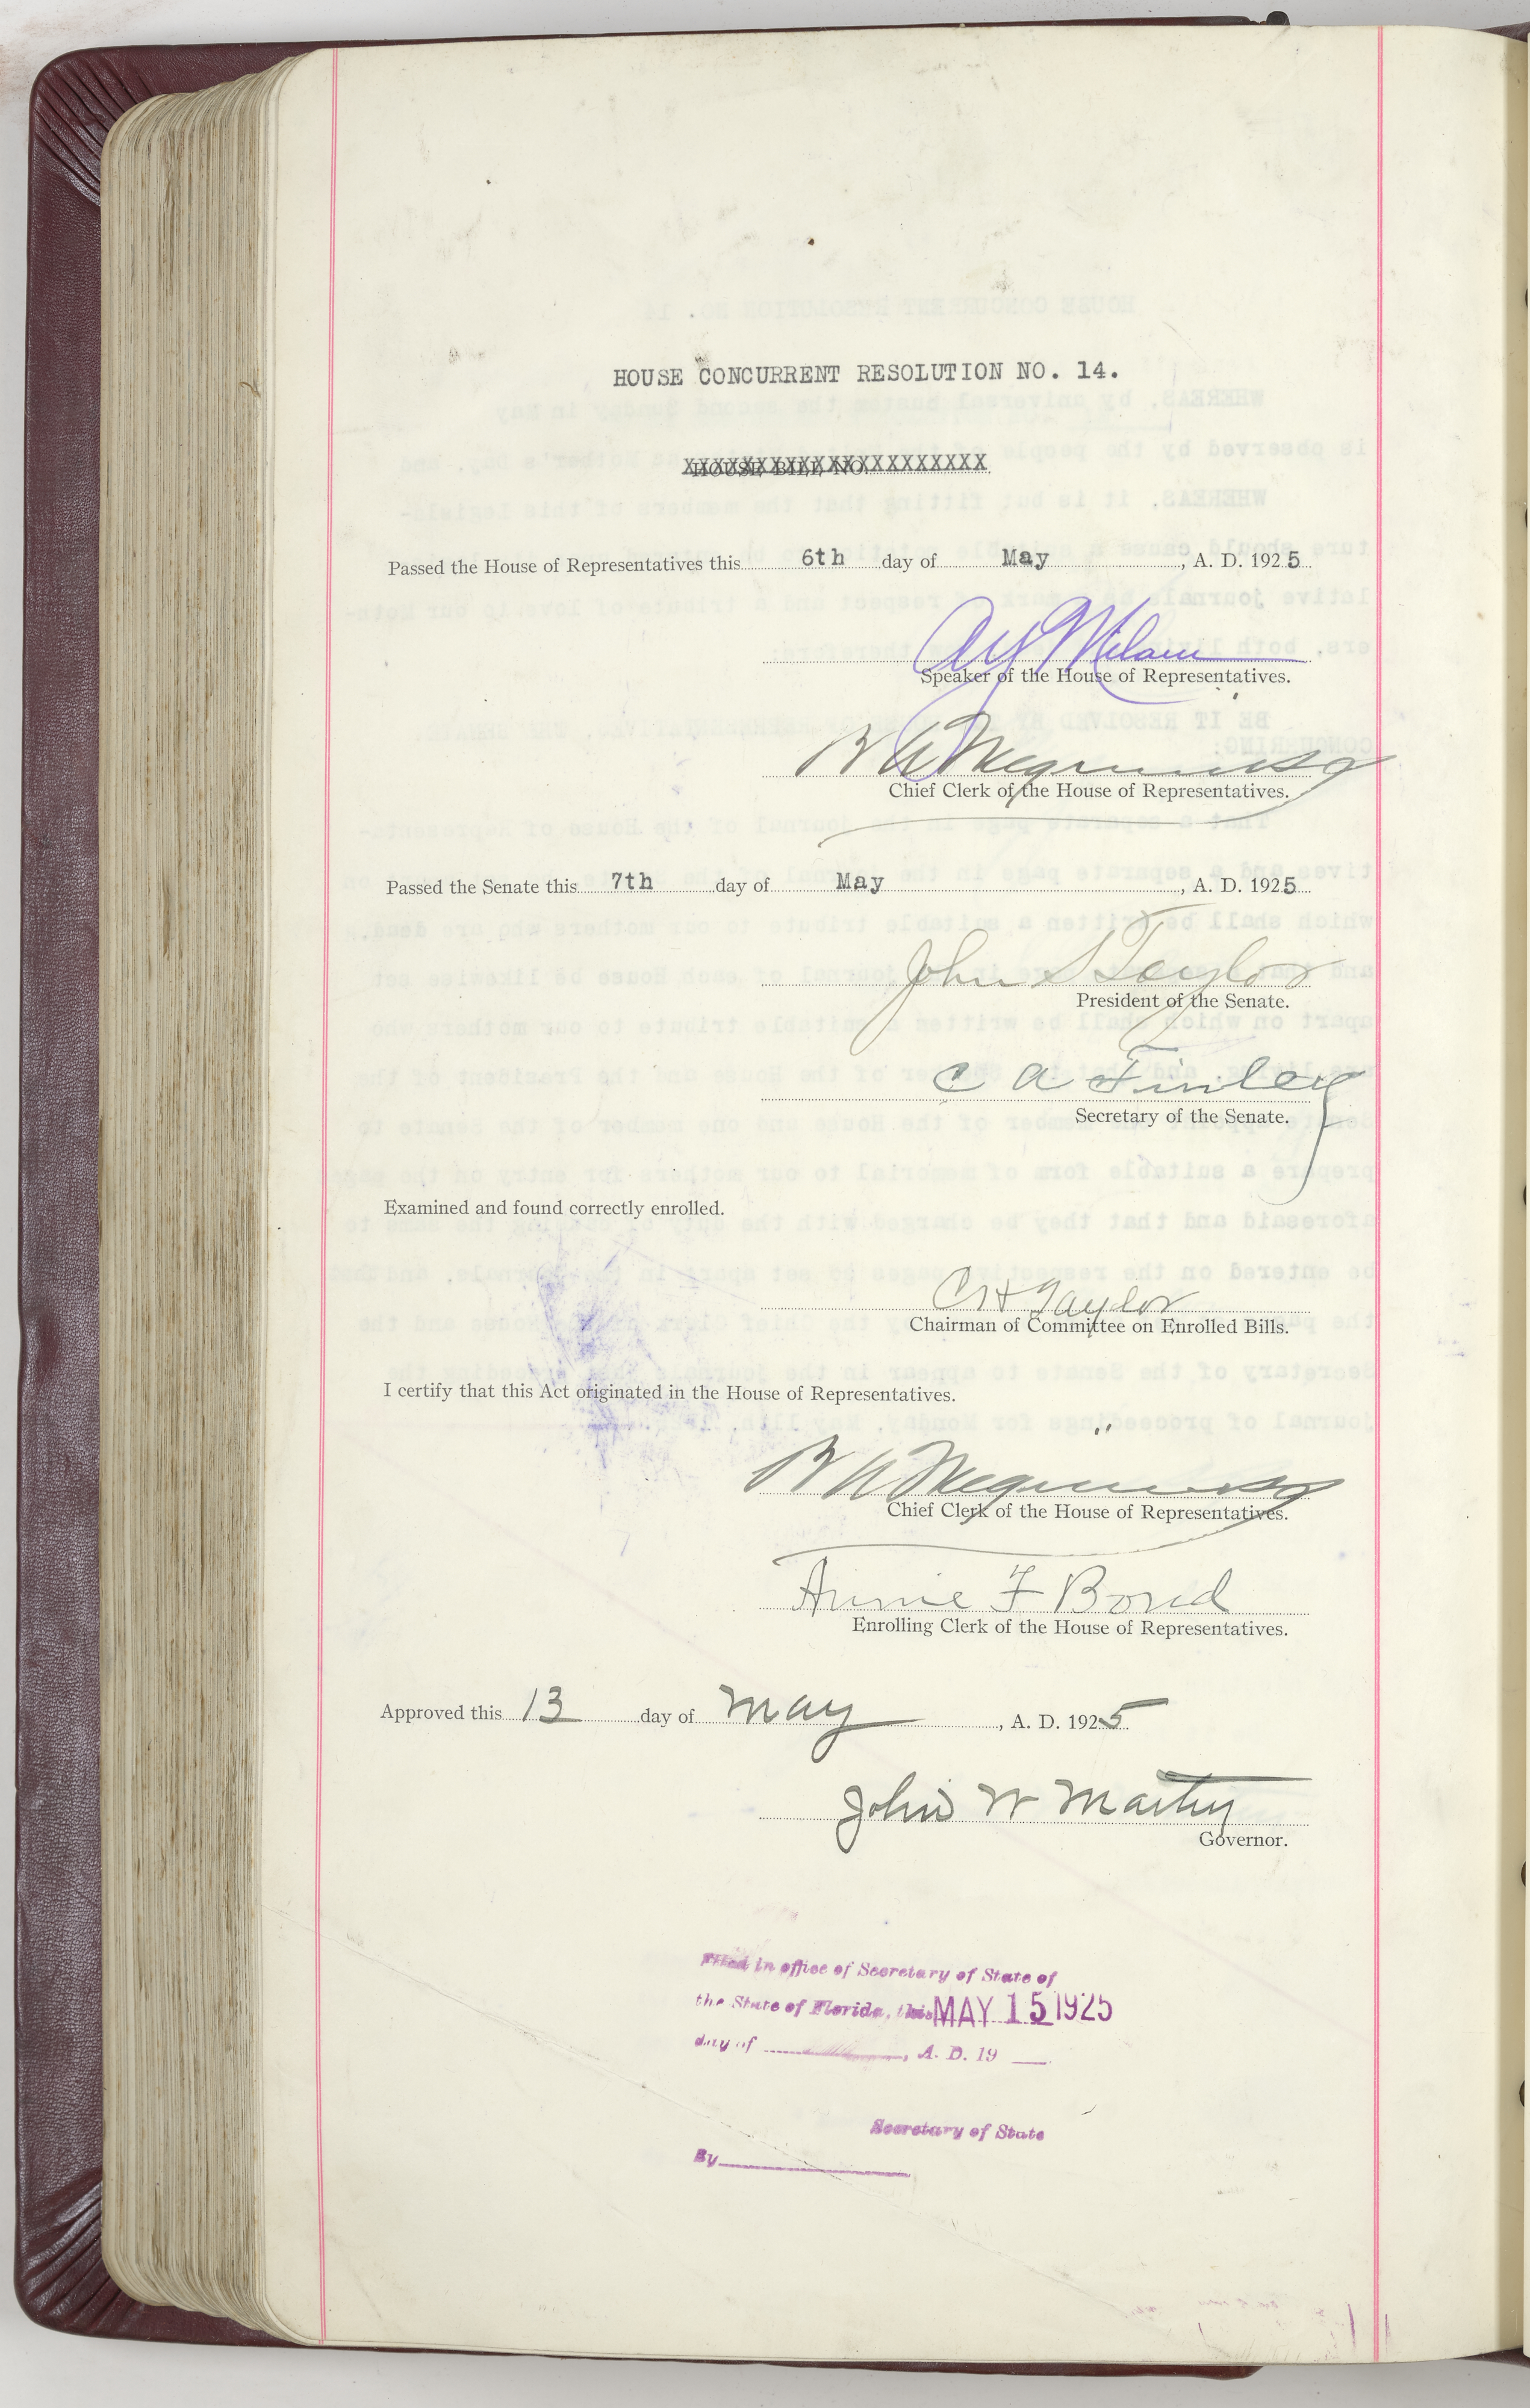 HOUSE CONCURRENT RESOLUTION NO. 14.
HOUSE BILL NO.
XXXXXXXXXXXXXXXXXXXXX
Passed the House of Representatives this 6th day of May, A. D. 1925
A Y Milam
Speaker of the House of Representatives.
B A Meginniss
Chief Clerk of the House of Representatives.
Passed the Senate this 7th day of May, A. D. 1925
John S Taylor
President of the Senate.
C A Finley
Secretary of the Senate.
Examined and found correctly enrolled.
C H Taylor
Chairman of Committee on Enrolled Bills.
I certify that this Act originated in the House of Representatives.
B A Meginniss
Chief Clerk of the House of Representatives.
Annie F Bond
Enrolling Clerk of the House of Representatives.
Approved this 13 day of May, A. D. 1925
John W Martin
Governor.
Filed in office of Secretary of State of
the State of Florida, this MAY 15 1925
day of , A. D. 19
Secretary of State
By